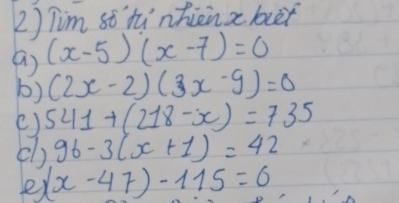 2) Tìm số tự nhiên x biết
a) (x-5) (x-7) = 0
b) (2x-2) (3x-9) = 0
c) 541 + (218-x) = 735
d) 96-3(x+1) = 42
e) (x-47) - 115 = 0